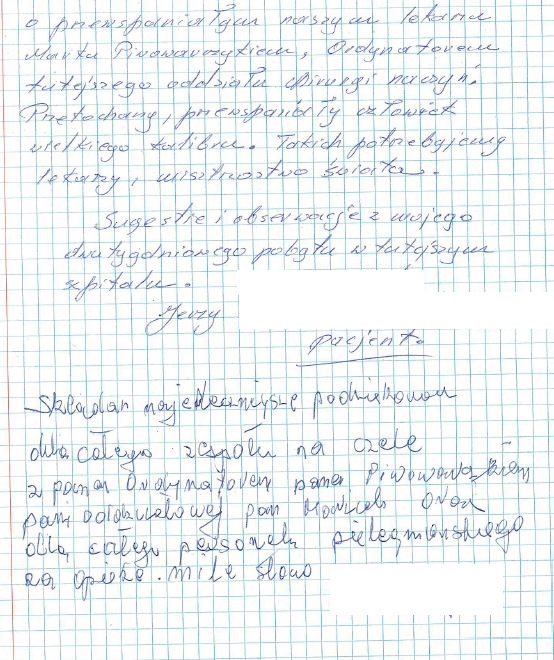 o przewspaniałym naszym lekarzu
Marku Piwowarczykiem, Ordynatorem
tutejszego oddziału chirurgi naczyń.
Przekochany, przewspaniały człowiek
wielkiego kalibru. Takich potrzebujemy
lekarzy, misztrostwo świata.
Sugestie i obserwacje z mojego
dwutygodniowego pobytu w tutejszym
szpitalu.
Jerzy
pacjent.
Składam najserdeczniejsze podziękowan
dla całego zespołu na czele
z panem Ordynatorem panem
pani oddziałowej pani oraz
dla całego personelu pielęgniarskiego
za opiekę. miłe słowo